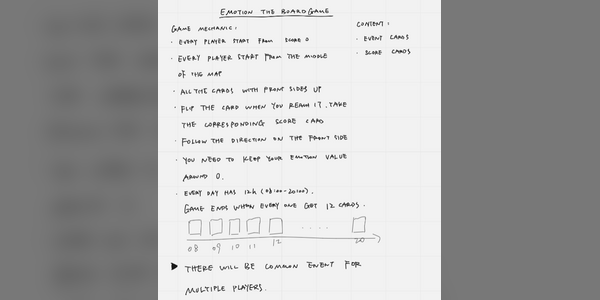 EMOTION THE BOARD GAME
GAME MECHANIC:
· EVERY PLAYER START FROM SCORE 0
· EVERY PLAYER START FROM THE MIDDLE
OF THE MAP
· ALL THE CARDS WITH FRONT SIDES UP
· FLIP THE CARD WHEN YOU REACH IT. TAKE
THE CORRESPONDING SCORE CARD
· FOLLOW THE DIRECTION ON THE FRONT SIDE
· YOU NEED TO KEEP YOUR EMOTION VALUE
AROUND 0.
· EVERY DAY HAS 12h (08:00-20:00).
GAME ENDS WHEN EVERY ONE GOT 12 CARDS.
08 09 10 11 12 .... 20
▶ THERE WILL BE COMMON EVENT FOR
MULTIPLE PLAYERS.
CONTENT:
· EVENT CARDS
· SCORE CARDS